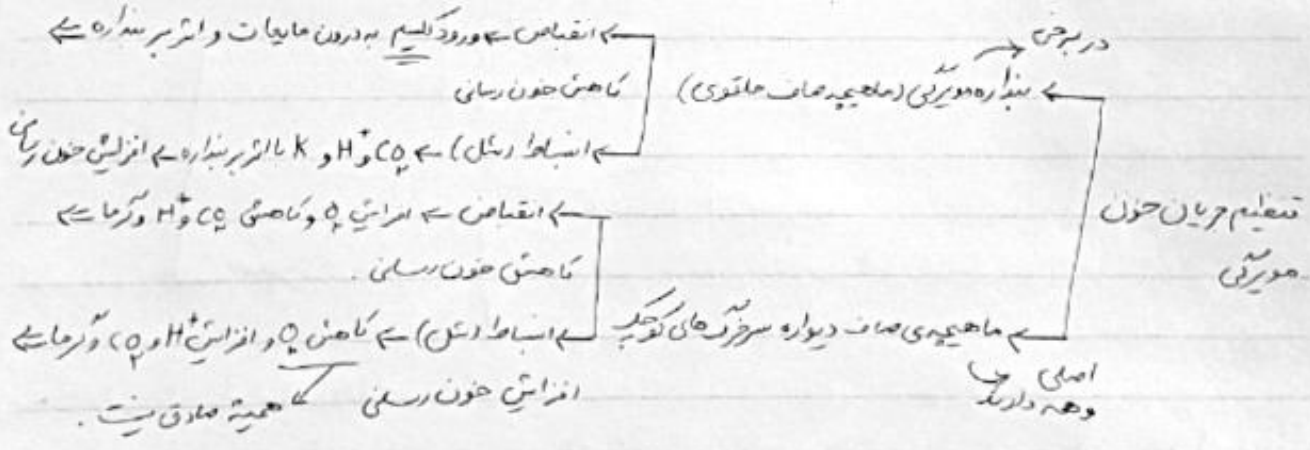 در برخی
تنظیم جریان خون
مویرگی
← بنداره مویرگی (ماهیچه صاف حلقوی)
← انقباض ← ورود کلسیم به درون مایعات و اثر بر بنداره ←
کاهش خون رسانی
← انبساط (شل) ← CO₂ و H⁺ و K با اثر بر بنداره ← افزایش خون رسانی
← ماهیچه‌ی صاف دیواره سرخرگ های کوچک
اصلی
و همه دارند
← انقباض ← افزایش O₂ و کاهش CO₂ و H⁺ و گرما ←
کاهش خون رسانی.
← انبساط (شل) ← کاهش O₂ و افزایش H⁺ و CO₂ و گرما ←
افزایش خون رسانی
همیشه صادق نیست.